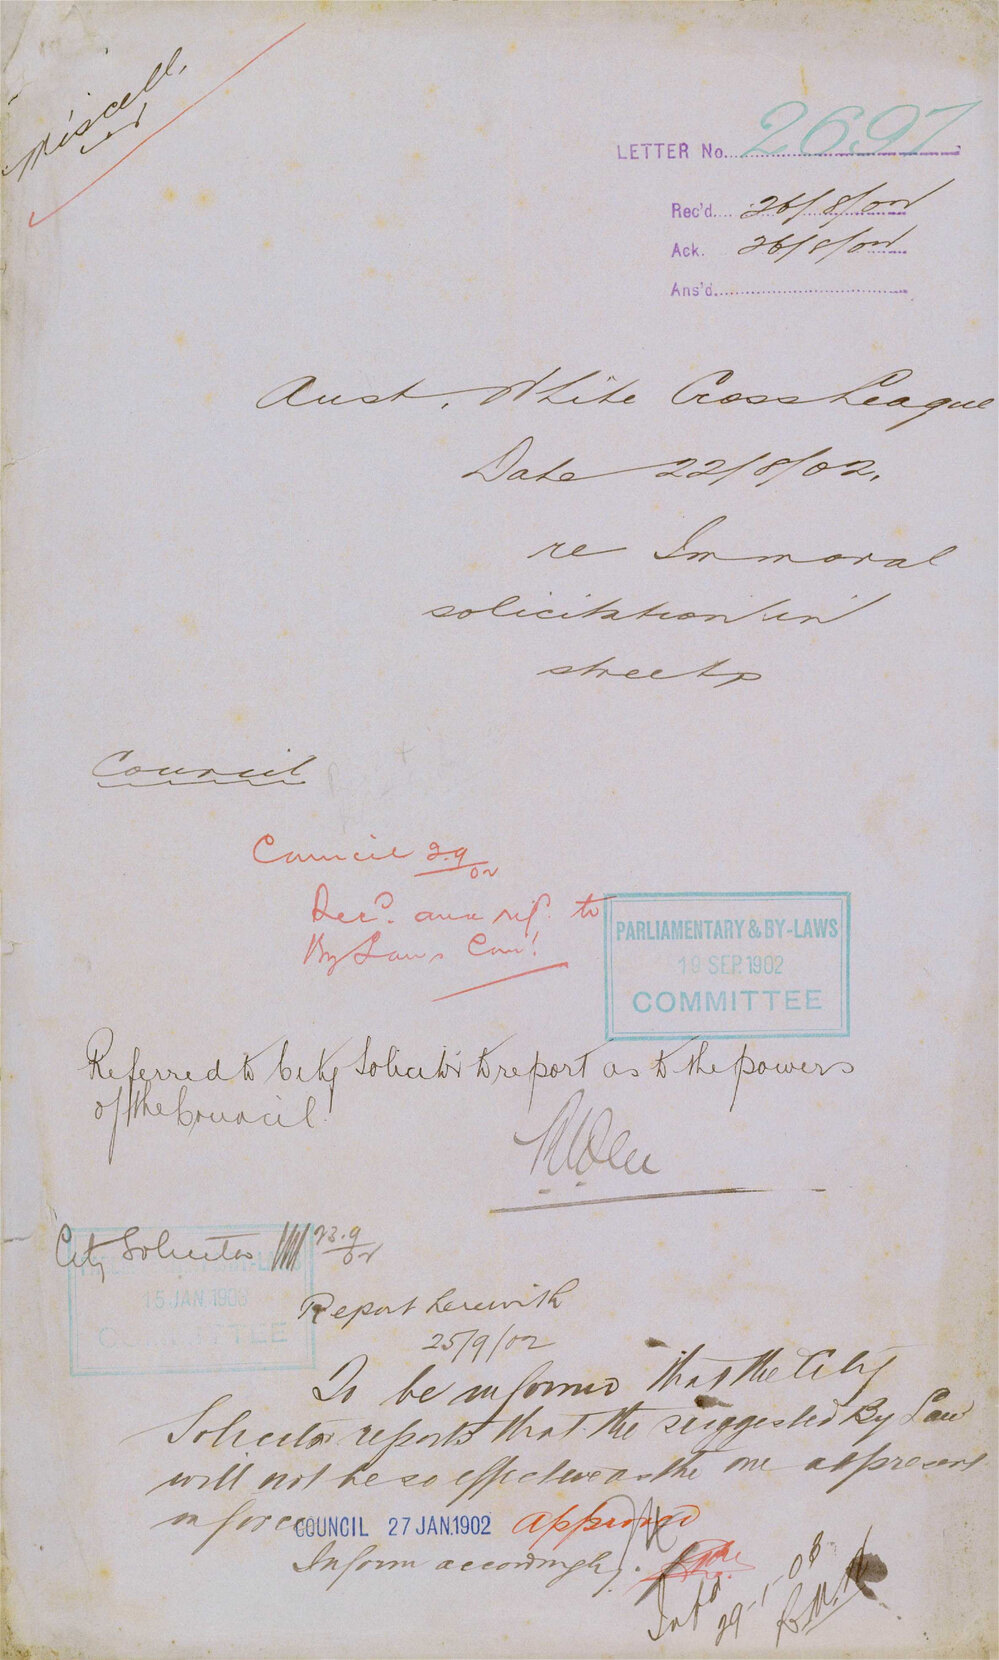 Miscell.
LETTER No. 2697
Rec'd. 26/8/02
Ack. 26/8/02
Ans'd.
Aust. White Cross League
Date 22/8/02.
re Immoral
solicitation in
streets
Council
Council 2.9/02
Rec'd. and ref. to
By Laws Com!
PARLIAMENTARY & BY-LAWS
19 SEP. 1902
COMMITTEE
Referred to City Solicitor to report as to the powers
of the Council.
City Solicitor 23.9/02
15 JAN. 1903
COMMITTEE
Report herewith
25/9/02
To be informed that the City
Solicitor reports that the suggested By Law
will not be so effective as the one at present
in force
COUNCIL 27 JAN. 1902 approved
Inform accordingly.
Inf'd
29-1-03